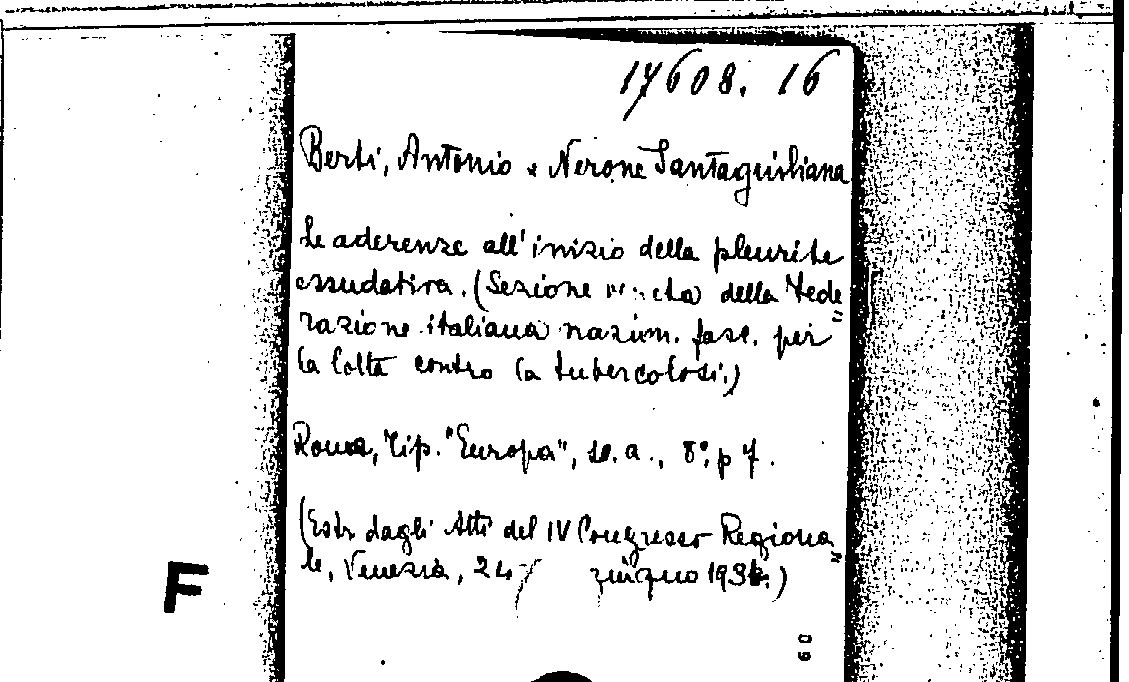 17608. 16
Berti, Antonio e Nerone Santagiuliana
Le aderenze all'inizio della pleurite
essudativa. (Sezione veneta della Fede=
razione italiana nazion. fasc. per
la lotta contro la tubercolosi.)
Roma, Tip. "Europa", s. a., 8°, p 7.
(Estr. dagli Atti del IV Congresso Regiona=
le, Venezia, 24 giugno)
F
60